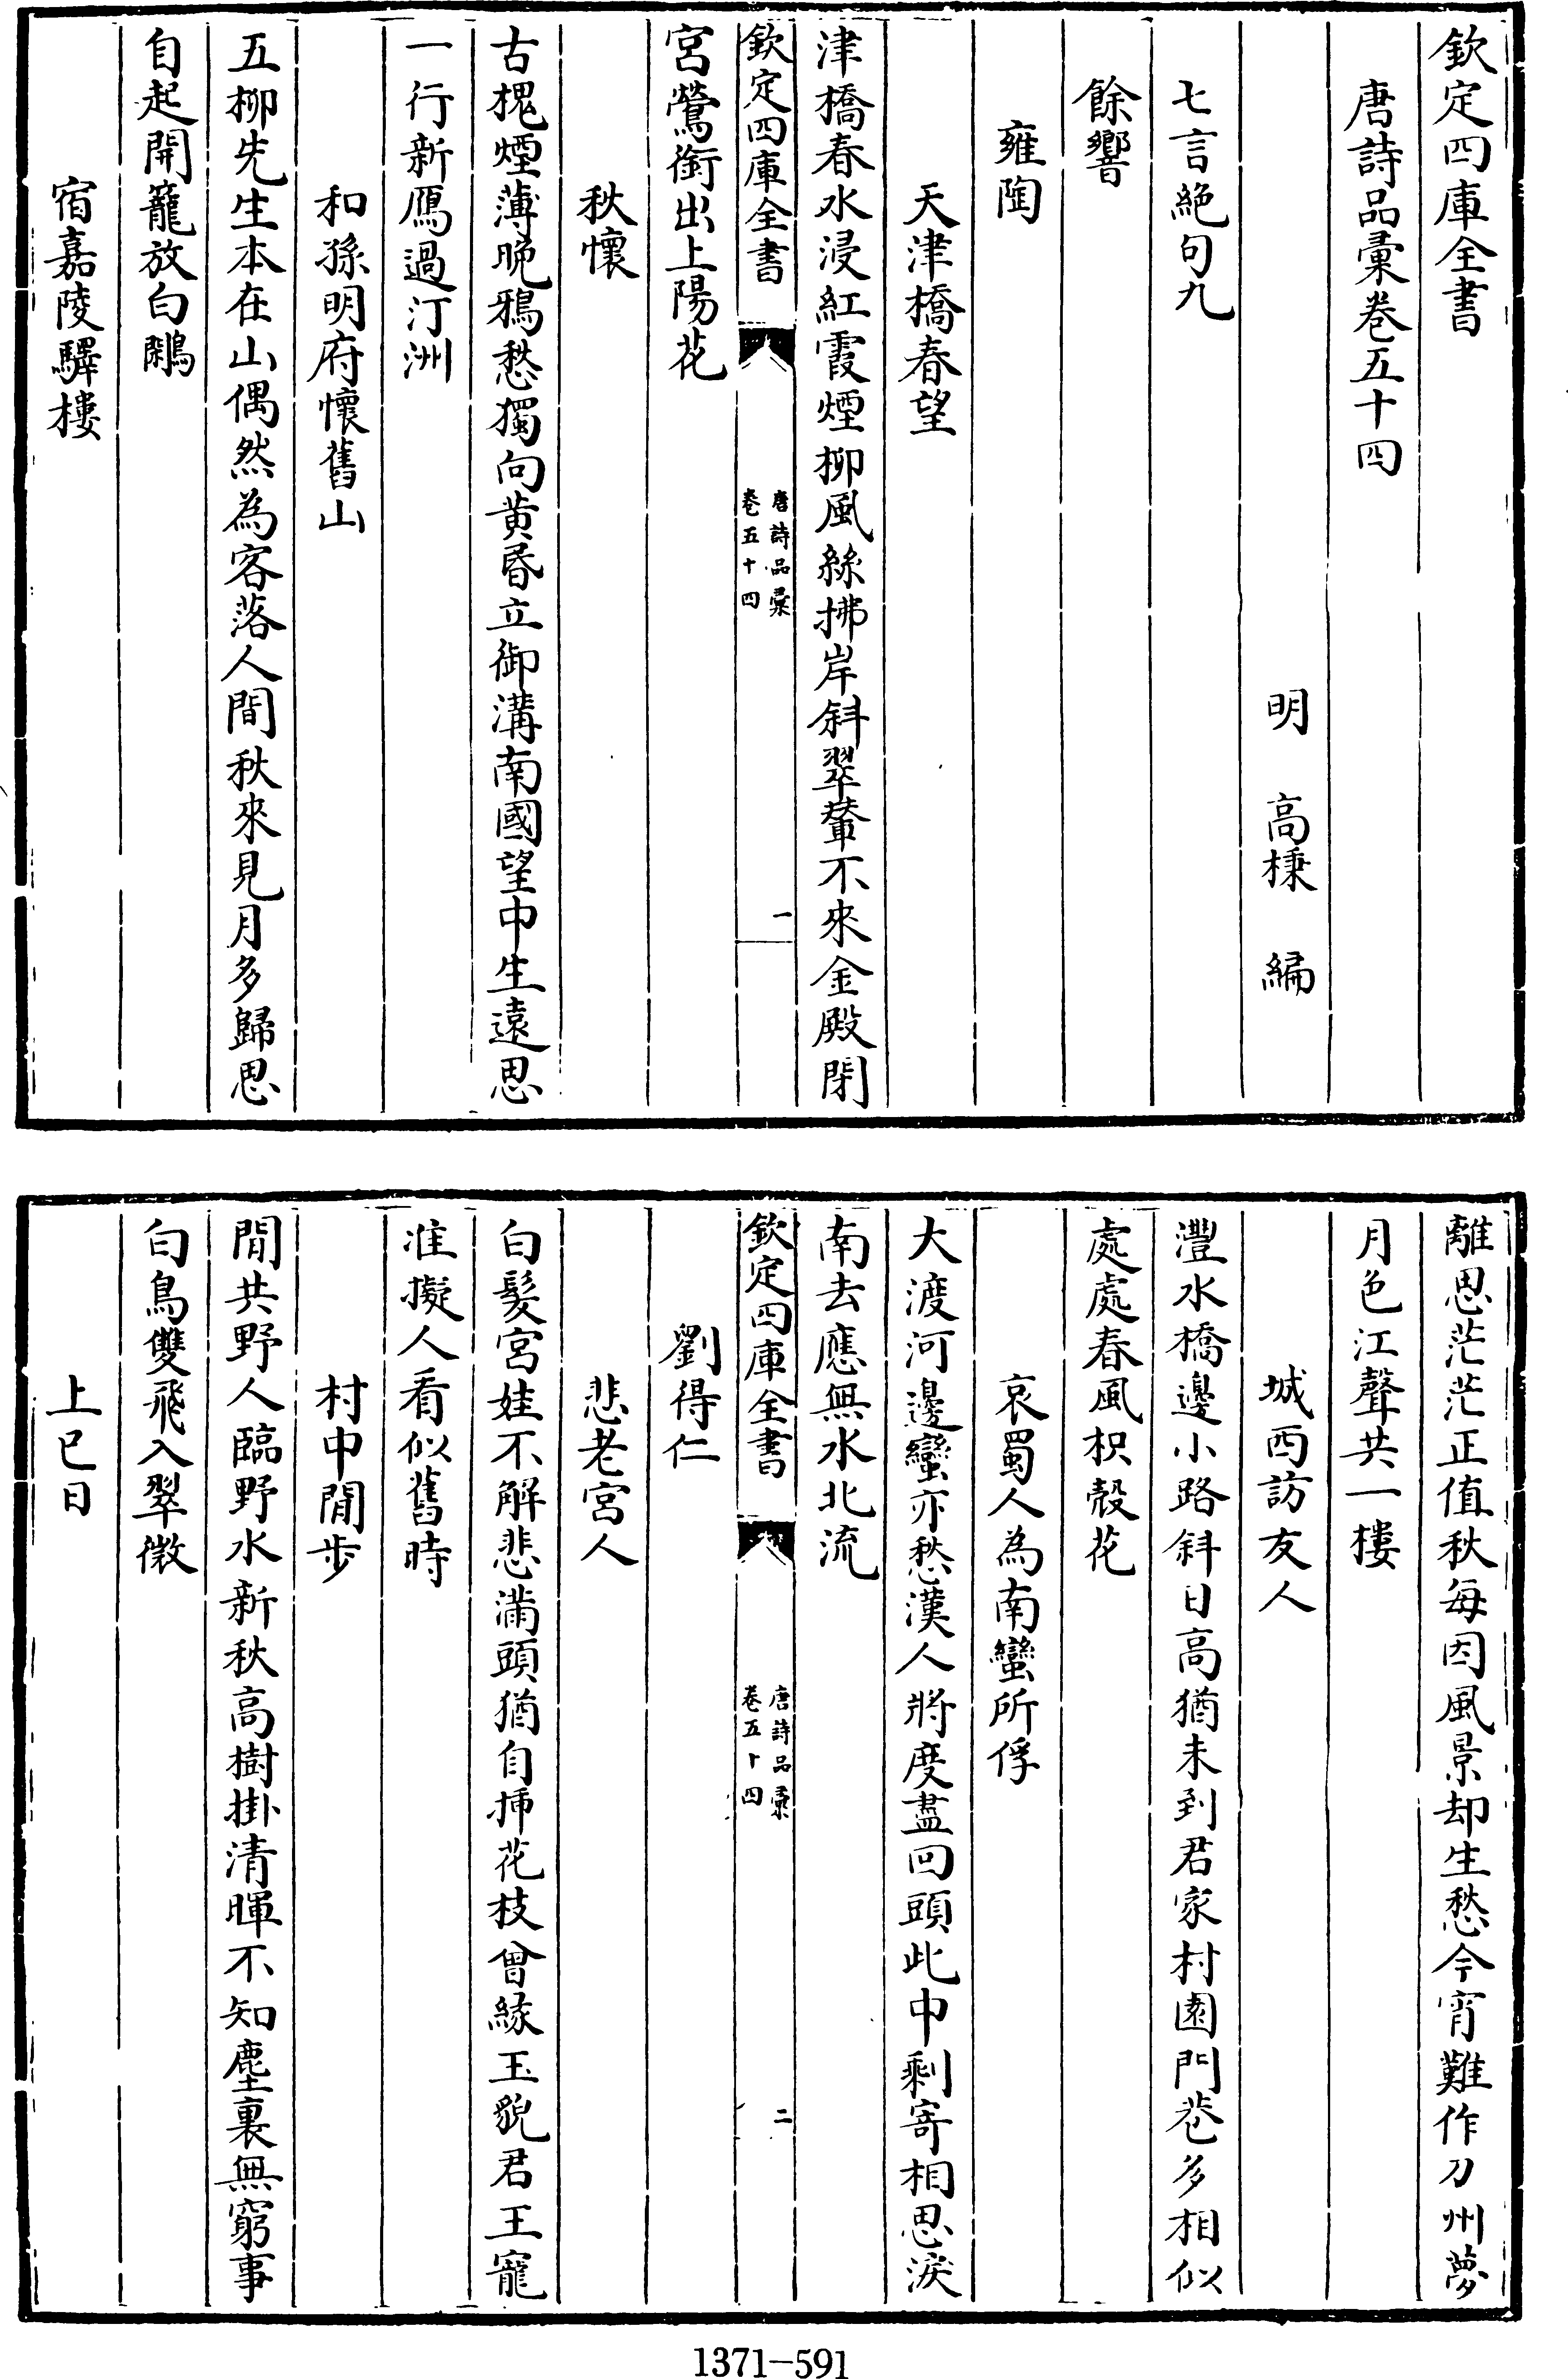 欽定四庫全書
唐詩品彚卷五十四
明　高棅　編
七言絶句九
餘響
雍陶
天津橋春望
津橋春水浸紅霞煙柳風絲拂岸斜翠輦不來金殿閉
欽定四庫全書
唐詩品彚
卷五十四
一
宮鶯銜出上陽花
秋懷
古槐煙薄晩鴉愁獨向黄昏立御溝南國望中生遠思
一行新鴈過汀洲
和孫明府懷舊山
五栁先生本在山偶然為客落人間秋來見月多歸思
自起開籠放白鷴
宿嘉陵驛樓
離思茫茫正值秋每因風景却生愁今宵難作刀州夢
月色江聲共一樓
城西訪友人
灃水橋邊小路斜日高猶未到君家村園門巷多相似
處處春風枳殻花
哀蜀人為南蠻所俘
大渡河邊蠻亦愁漢人將度盡回頭此中剩寄相思淚
南去應無水北流
欽定四庫全書
唐詩品彚
卷五十四
二
劉得仁
悲老宮人
白髮宮娃不解悲滿頭猶自挿花枝曾緣玉貌君王寵
准擬人看似舊時
村中閒步
閒共野人臨野水新秋高樹掛清暉不知塵裏無窮事
白鳥雙飛入翠微
上巳日
1371-591